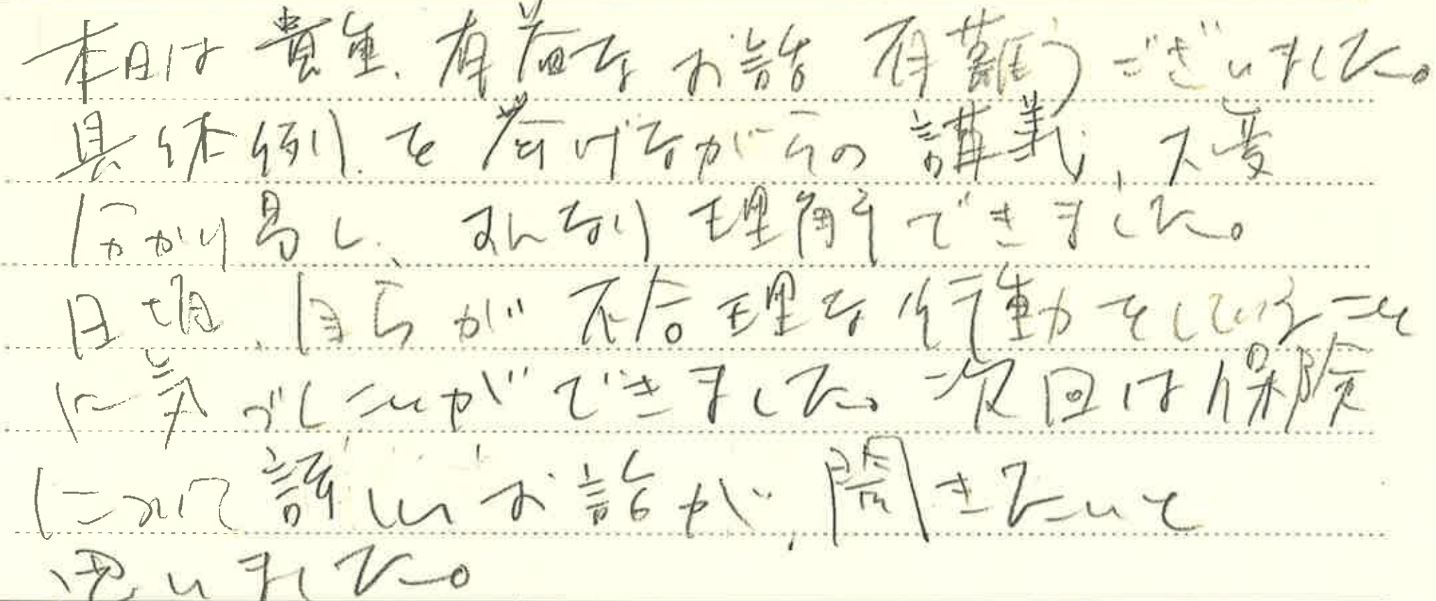 本日は貴重、有益なお話有難うございました。
具体例を挙げながらの講義、大変
分かり易く、すんなり理解できました。
日頃、自らが不合理な行動をしていること
に気づくことができました。次回は保険
について詳しいお話が、聞きたいと
思いました。